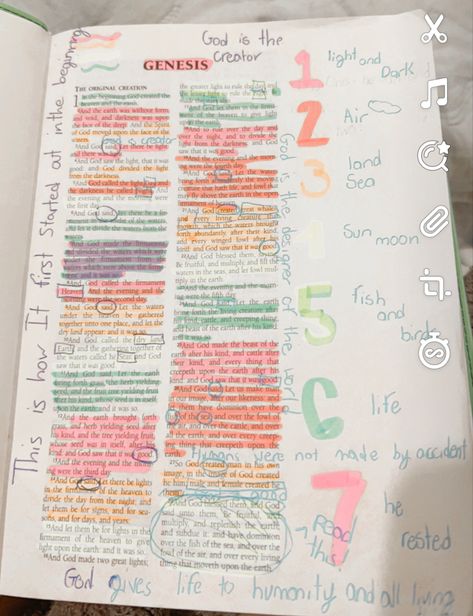 God is the
creator
GENESIS
This is how It first started at in the beginning
THE ORIGINAL CREATION
In the beginning God created the
heaven and the earth.
And the earth was without form
and void, and darkness was upon
the face of the deep. And the Spirit
of God moved upon the face of the
waters.
And God said, Let there be light:
and there was light.
And God saw the light, that it was
good: and God divided the light
from the darkness.
And God called the light Day, and
the darkness he called Night. And
the evening and the morning were
the first day.
And God said, Let there be a fir-
mament in the midst of the waters,
and let it divide the waters from
the waters.
And God made the firmament,
and divided the waters which were
under the firmament from the wa-
ters which were above the firma-
ment: and it was so.
And God called the firmament
Heaven. And the evening and the
morning were the second day.
And God said, Let the waters
under the heaven be gathered
together unto one place, and let the
dry land appear: and it was so.
And God called the dry land
Earth; and the gathering together of
the waters called he Seas: and God
saw that it was good.
And God said, Let the earth
bring forth grass, the herb yielding
seed, and the fruit tree yielding fruit
after his kind, whose seed is in itself,
upon the earth: and it was so.
And the earth brought forth
grass, and herb yielding seed after
his kind, and the tree yielding fruit,
whose seed was in itself, after his
kind: and God saw that it was good.
And the evening and the morn-
ing were the third day.
And God said, Let there be lights
in the firmament of the heaven to
divide the day from the night; and
let them be for signs, and for sea-
sons, and for days, and years:
And let them be for lights in the
firmament of the heaven to give
light upon the earth: and it was so.
And God made two great lights;
the greater light to rule the day, and
the lesser light to rule the night: he
made the stars also.
And God set them in the firma-
ment of the heaven to give light
upon the earth,
And to rule over the day and
over the night, and to divide the
light from the darkness: and God
saw that it was good.
And the evening and the morn-
ing were the fourth day.
And God said, Let the waters
bring forth abundantly the moving
creature that hath life, and fowl that
may fly above the earth in the open
firmament of heaven.
And God created great whales,
and every living creature that
moveth, which the waters brought
forth abundantly, after their kind,
and every winged fowl after his
kind: and God saw that it was good.
And God blessed them, saying,
Be fruitful, and multiply, and fill the
waters in the seas, and let fowl mul-
tiply in the earth.
And the evening and the morn-
ing were the fifth day.
And God said, Let the earth
bring forth the living creature after
his kind, cattle, and creeping thing,
and beast of the earth after his kind:
and it was so.
And God made the beast of the
earth after his kind, and cattle after
their kind, and every thing that
creepeth upon the earth after his
kind: and God saw that it was good.
And God said, Let us make man
in our image, after our likeness: and
let them have dominion over the
fish of the sea, and over the fowl of
the air, and over the cattle, and over
all the earth, and over every creep-
ing thing that creepeth upon the
earth.
So God created man in his own
image, in the image of God created
he him; male and female created he
them.
And God blessed them, and God
said unto them, Be fruitful, and
multiply, and replenish the earth,
and subdue it: and have dominion
over the fish of the sea, and over the
fowl of the air, and over every living
thing that moveth upon the earth.
God is the designer of the world
1 light and
Dark
2 Air
3 land
Sea
4 Sun moon
5 fish
and
birds
6 life
Humans were not made by accident
7 he
rested
Read
this
God gives life to humanity and all living